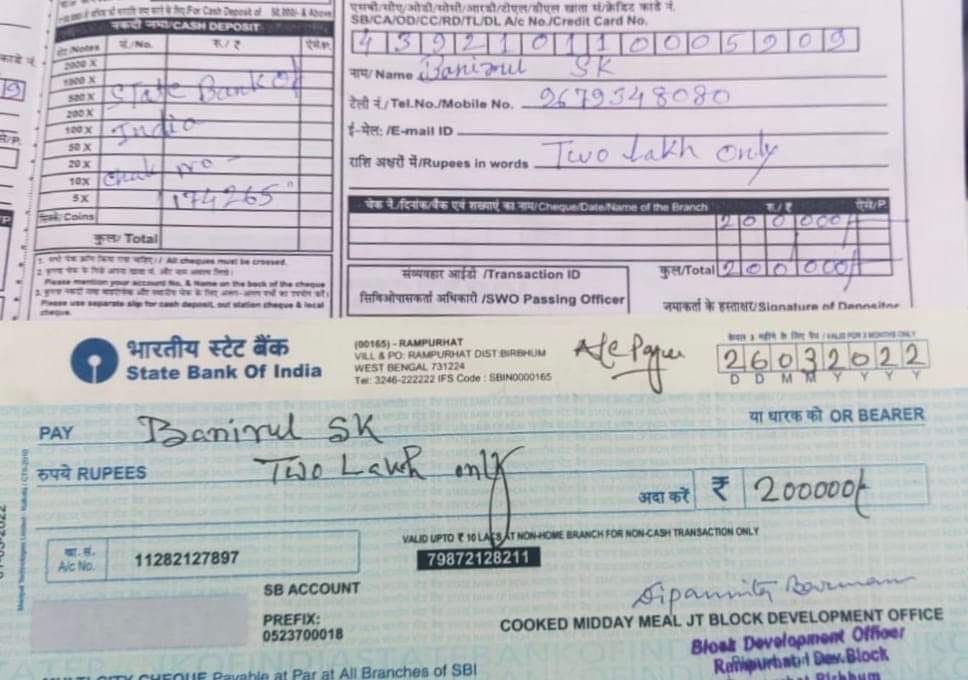 भरते समय For Cash Deposit of 50,000/- & Above
नकदी जमा/CASH DEPOSIT
नोट/Notes नं./No. रु./₹ ऐसे/P.
2000 X
1000 X
500 X State Bank Of
200 X
100 X India
50 X
20 X Chak no -
10X
5 X 174265"
सिक्के/Coins
कुल/Total
All cheques must be crossed.
Please mention your account No. & Name on the back of the cheque
Please use separate slip for cash deposit, out station cheque & local cheque.
SB/CA/OD/CC/RD/TL/DL A/c No./Credit Card No.
439210110005909
नाम/ Name Banirul SK
टेली नं./Tel.No./Mobile No. 9679348080
ई-मेल:/E-mail ID
राशि अक्षरों में/Rupees in words Two Lakh only
चेक नं./दिनांक/बैंक एवं शाखाएं का नाम/Cheque/Date/Name of the Branch रु./₹ ऐसे/P.
200000/-
कुल/Total 200000/-
संव्यवहार आईडी /Transaction ID
सिविओपासकर्ता अधिकारी /SWO Passing Officer
जमाकर्ता के हस्ताक्षर/Signature of Depositor
भारतीय स्टेट बैंक
State Bank Of India
(00165) - RAMPURHAT
VILL & PO: RAMPURHAT DIST:BIRBHUM
WEST BENGAL 731224
Tel: 3246-222222 IFS Code : SBIN0000165
A/c Payee
केवल 3 महीने के लिए वैध / VALID FOR 3 MONTHS ONLY
26032022
D D M M Y Y Y Y
PAY Banirul SK या धारक को OR BEARER
रुपये RUPEES Two Lakh only
अदा करें ₹ 200000/-
VALID UPTO ₹ 10 LACS AT NON-HOME BRANCH FOR NON-CASH TRANSACTION ONLY
खा. सं.
A/c No. 11282127897
79872128211
SB ACCOUNT
PREFIX:
0523700018
Dipannita Barman
COOKED MIDDAY MEAL JT BLOCK DEVELOPMENT OFFICE
Block Development Officer
Rampurhat-I Dev. Block
Rampurhat Birbhum
MULTI-CITY CHEQUE Payable at Par at All Branches of SBI